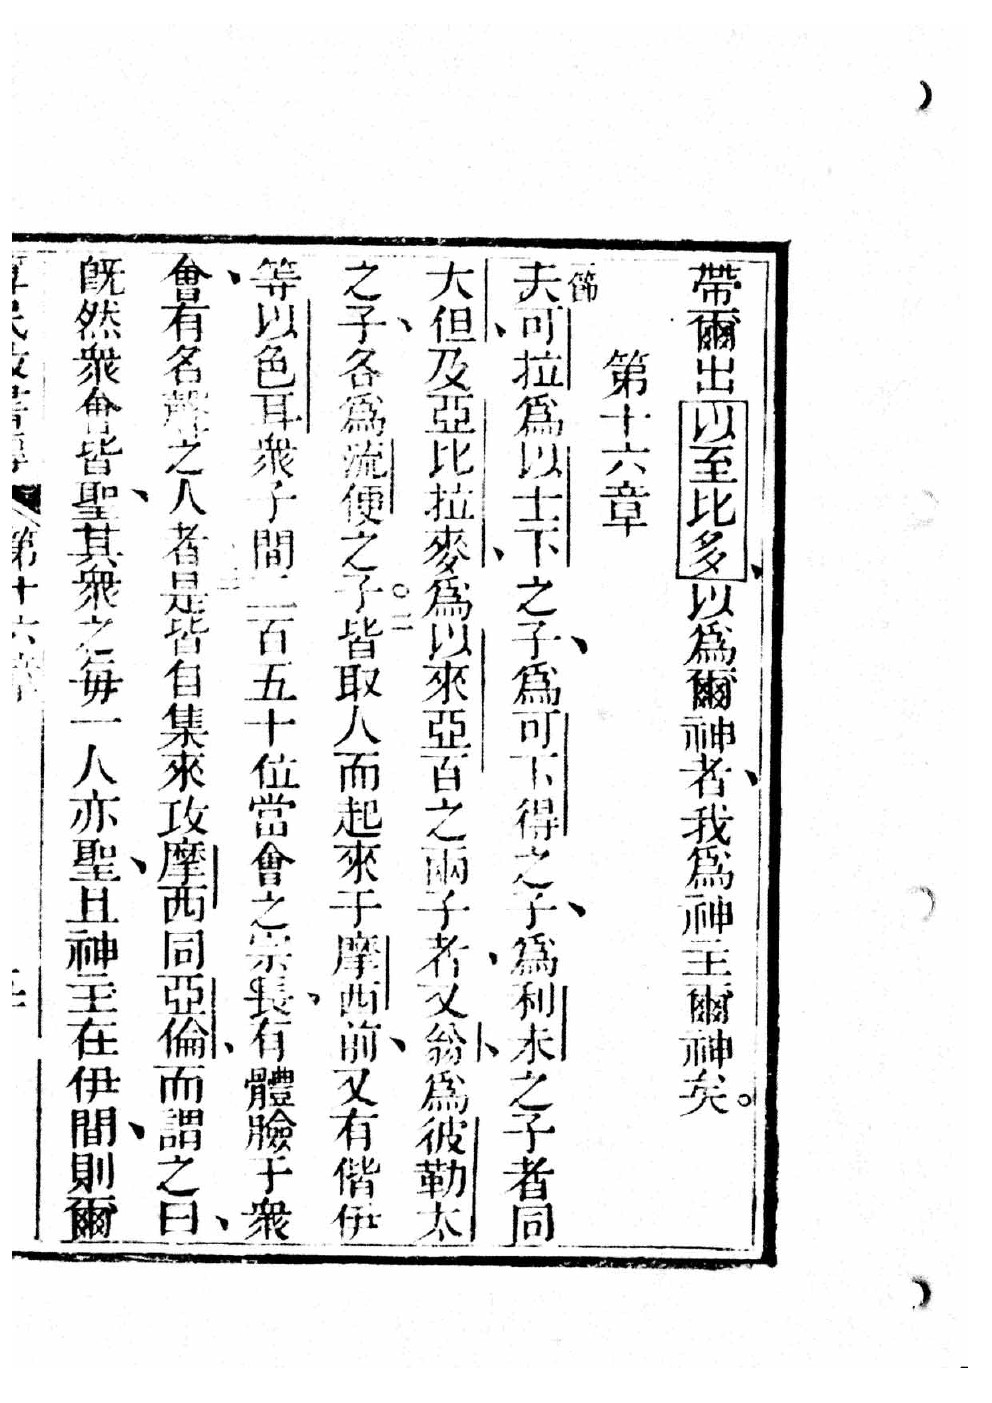 帶爾出以至比多、以爲爾神者、我爲神主爾神矣。
第十六章
一節 夫可拉爲以士下之子、爲可下得之子、爲利未之子者同
大但、及亞比拉麥、爲以來亞百之兩子者、又翁、爲彼勒太
之子、各爲流便之子。二皆取人而起來于摩西前、又有偕伊
等以色耳衆子間二百五十位當會之宗長、有體臉于衆
會、有名聲之人者、三是皆自集來攻摩西同亞倫、而謂之曰、
旣然衆會皆聖、其衆之每一人亦聖、且神主在伊間、則爾
第十六章